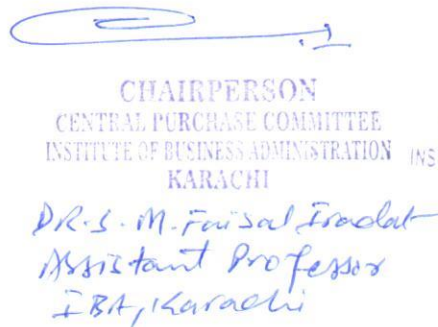 CHAIRPERSON
CENTRAL PURCHASE COMMITTEE
INSTITUTE OF BUSINESS ADMINISTRATION INS
KARACHI
DR. S. M. Faisal Iradat
Assistant Professor
IBA, Karachi